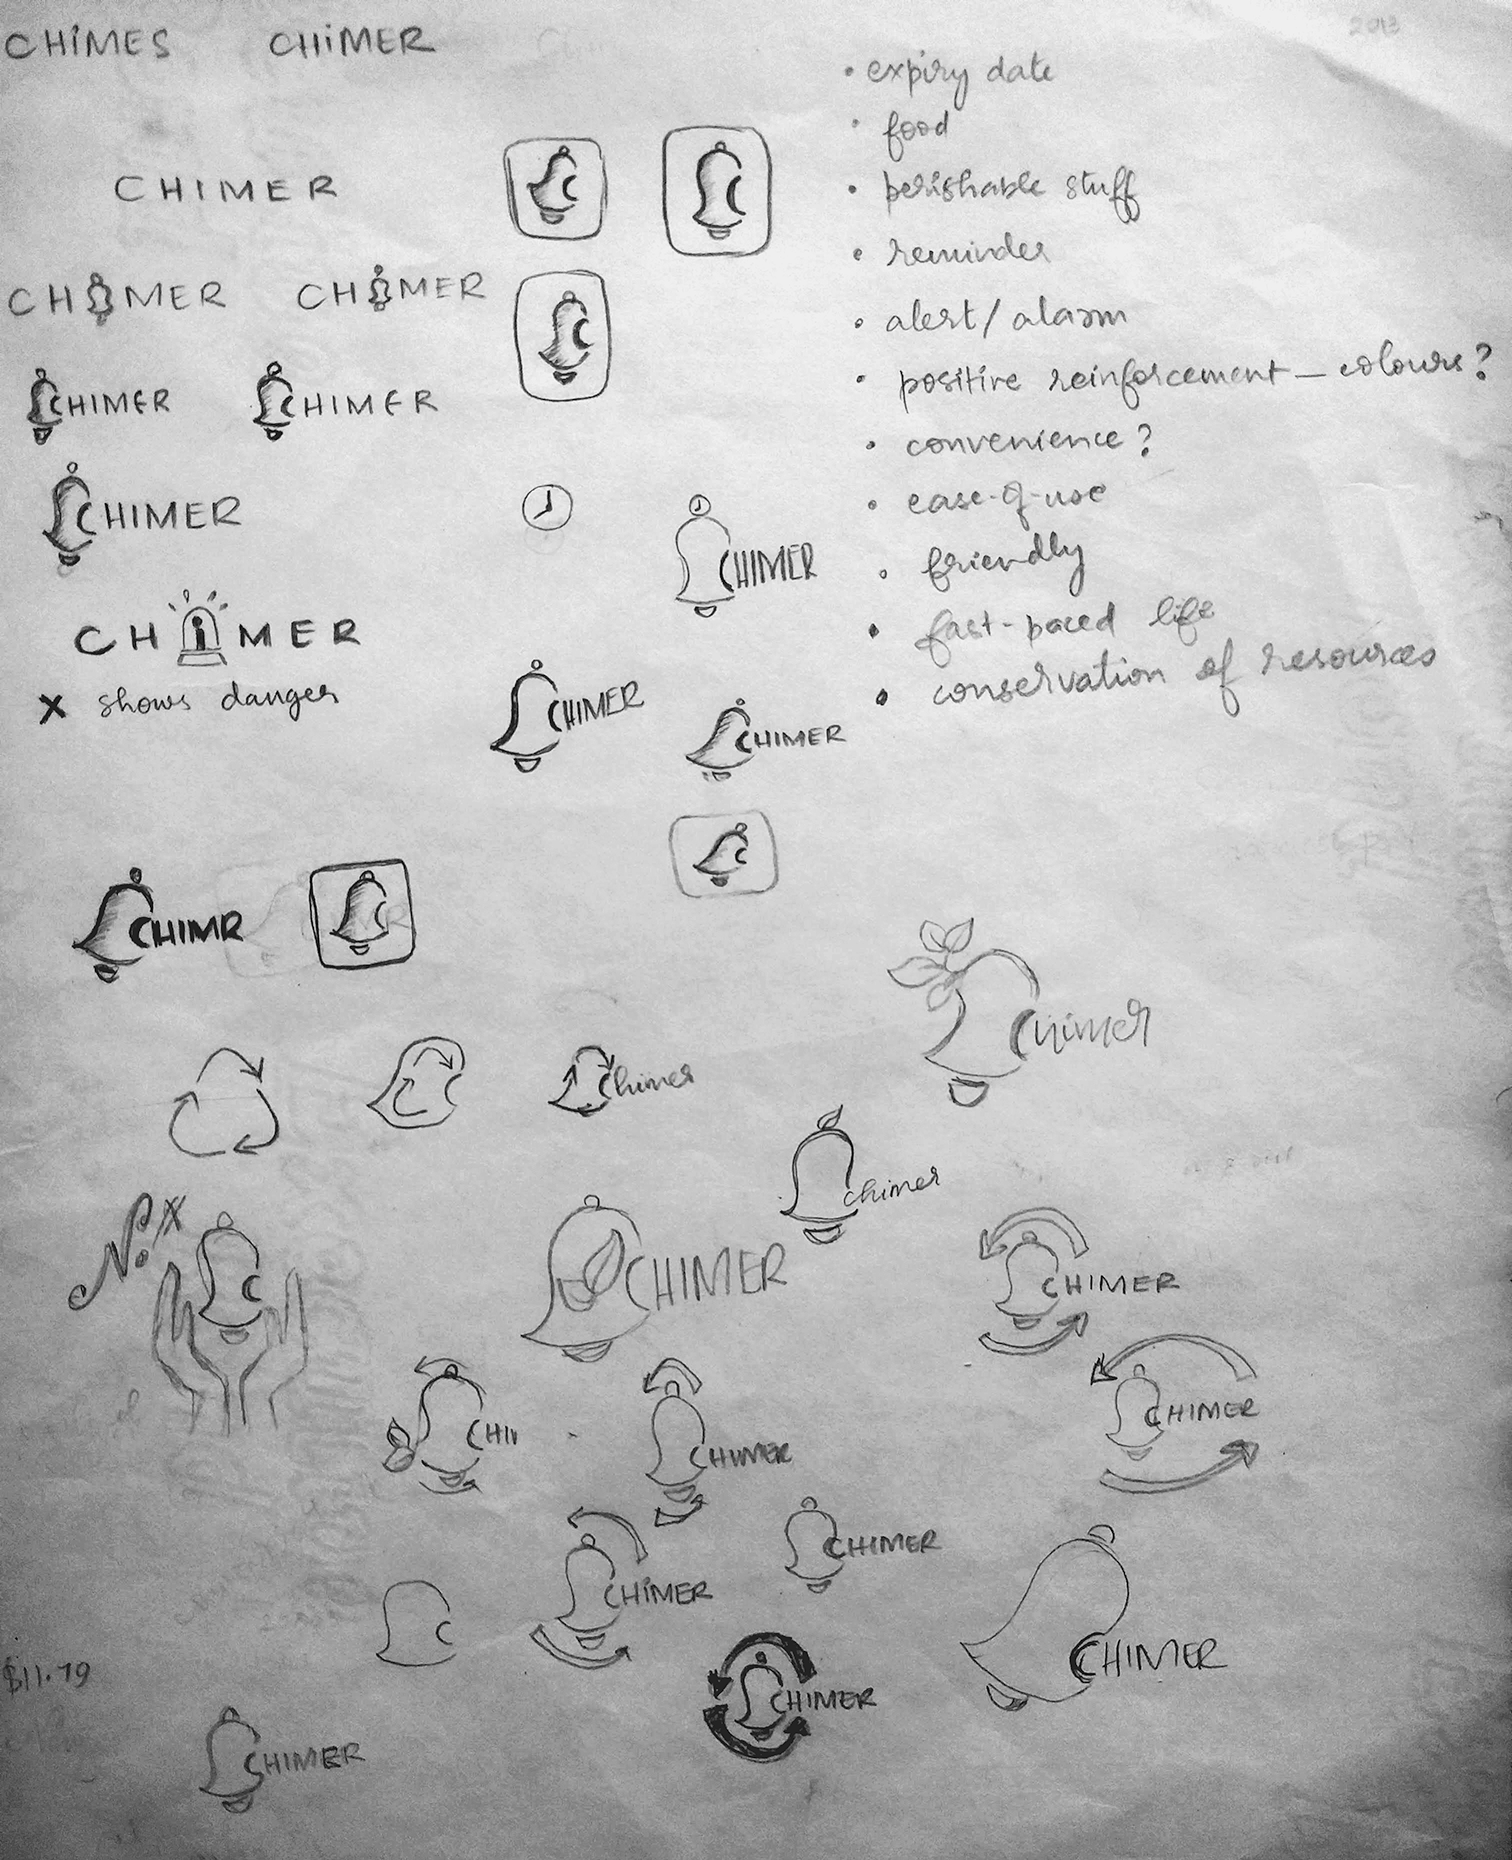 CHiMES CHiMER
2013
CHIMER
CHIMER CHIMER
CHIMER CHIMER
CHIMER
CHIMER
X shows danger
• expiry date
• food
• perishable stuff
• reminder
• alert/alarm
• positive reinforcement — colours?
• convenience?
• ease-of-use
• friendly
• fast-paced life
• conservation of resources
CHIMER
CHIMER
CHIMER
C
C
C
C
CHIMR
C
Chimer
Chimer
chimer
No X
C
CHIMER
CHIMER
CHIMER
CHI
CHIMER
CHIMER
CHiMER
C
CHIMER
CHIMER
$11.79
CHIMER